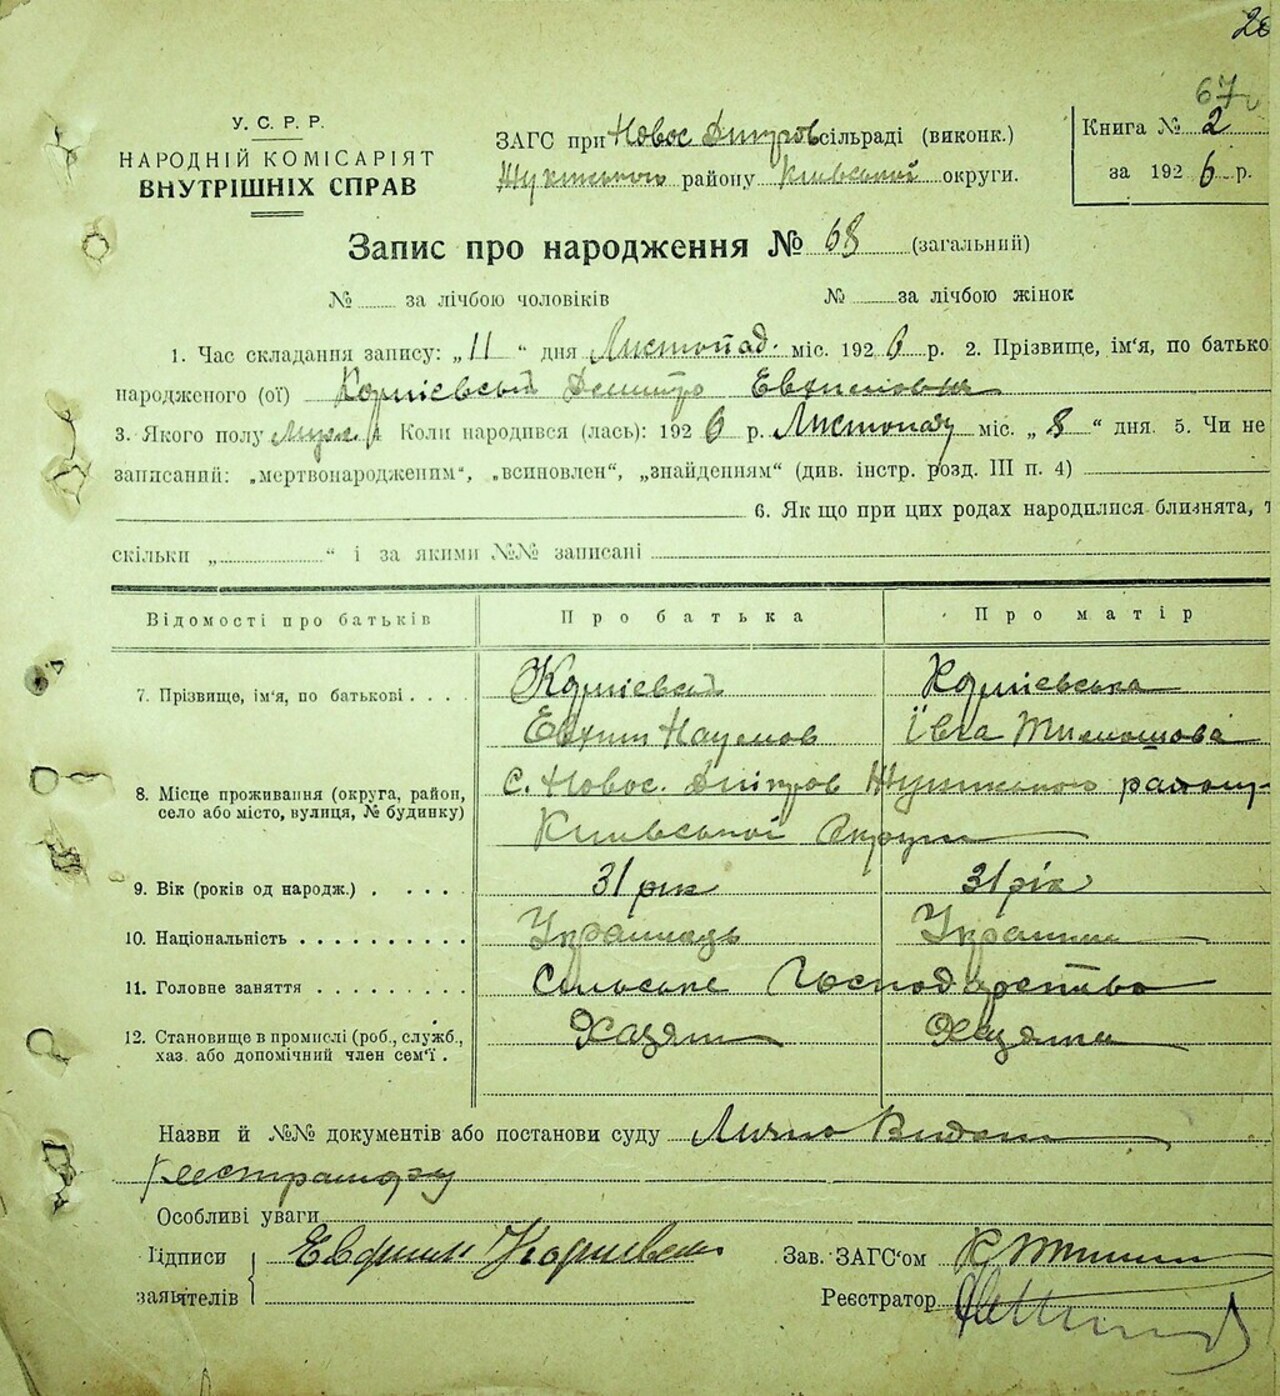 67
У. С. Р. Р.
НАРОДНІЙ КОМІСАРІЯТ
ВНУТРІШНІХ СПРАВ
ЗАГС при Новос Дніпров сільраді (виконк.)
району Київської округи.
Книга № 2
за 1926 р.
Запис про народження № 68 (загальний)
№ за лічбою чоловіків № за лічбою жінок
1. Час складання запису: „11“ дня Листопад. міс. 1926 р. 2. Прізвище, ім'я, по батько
народженого (ої) Корнієвський Дмитро Евхимович
3. Якого полу Муж. 4 Коли народився (лась): 1926 р. Листопаду міс. „8“ дня. 5. Чи не
записаний: „мертвонародженим“, „всиновлен“, „знайденням“ (див. інстр. розд. III п. 4)
6. Як що при цих родах народилися близнята, т
скільки „ “ і за якими №№ записані
Відомості про батьків Про батька Про матір
7. Прізвище, ім'я, по батькові . . . . Корнієвский Корнієвська
Евхим Наумов Ївга Тимошова
8. Місце проживання (округа, район, село або місто, вулиця, № будинку) С. Новос. Дніпров району
Київської Округи
9. Вік (років од народж.) . . . . . 31 рік 31 рік
10. Національність . . . . . . . . . . Українець Україн
11. Головне заняття . . . . . . . . . Сільське Господарство
12. Становище в промислі (роб., служб., хаз. або допомічний член сем'ї . Хазяін Хазяіка
Назви й №№ документів або постанови суду Лично
Реєстратору
Особливі уваги
Підписи
заявителів
Зав. ЗАГС'ом
Реєстратор